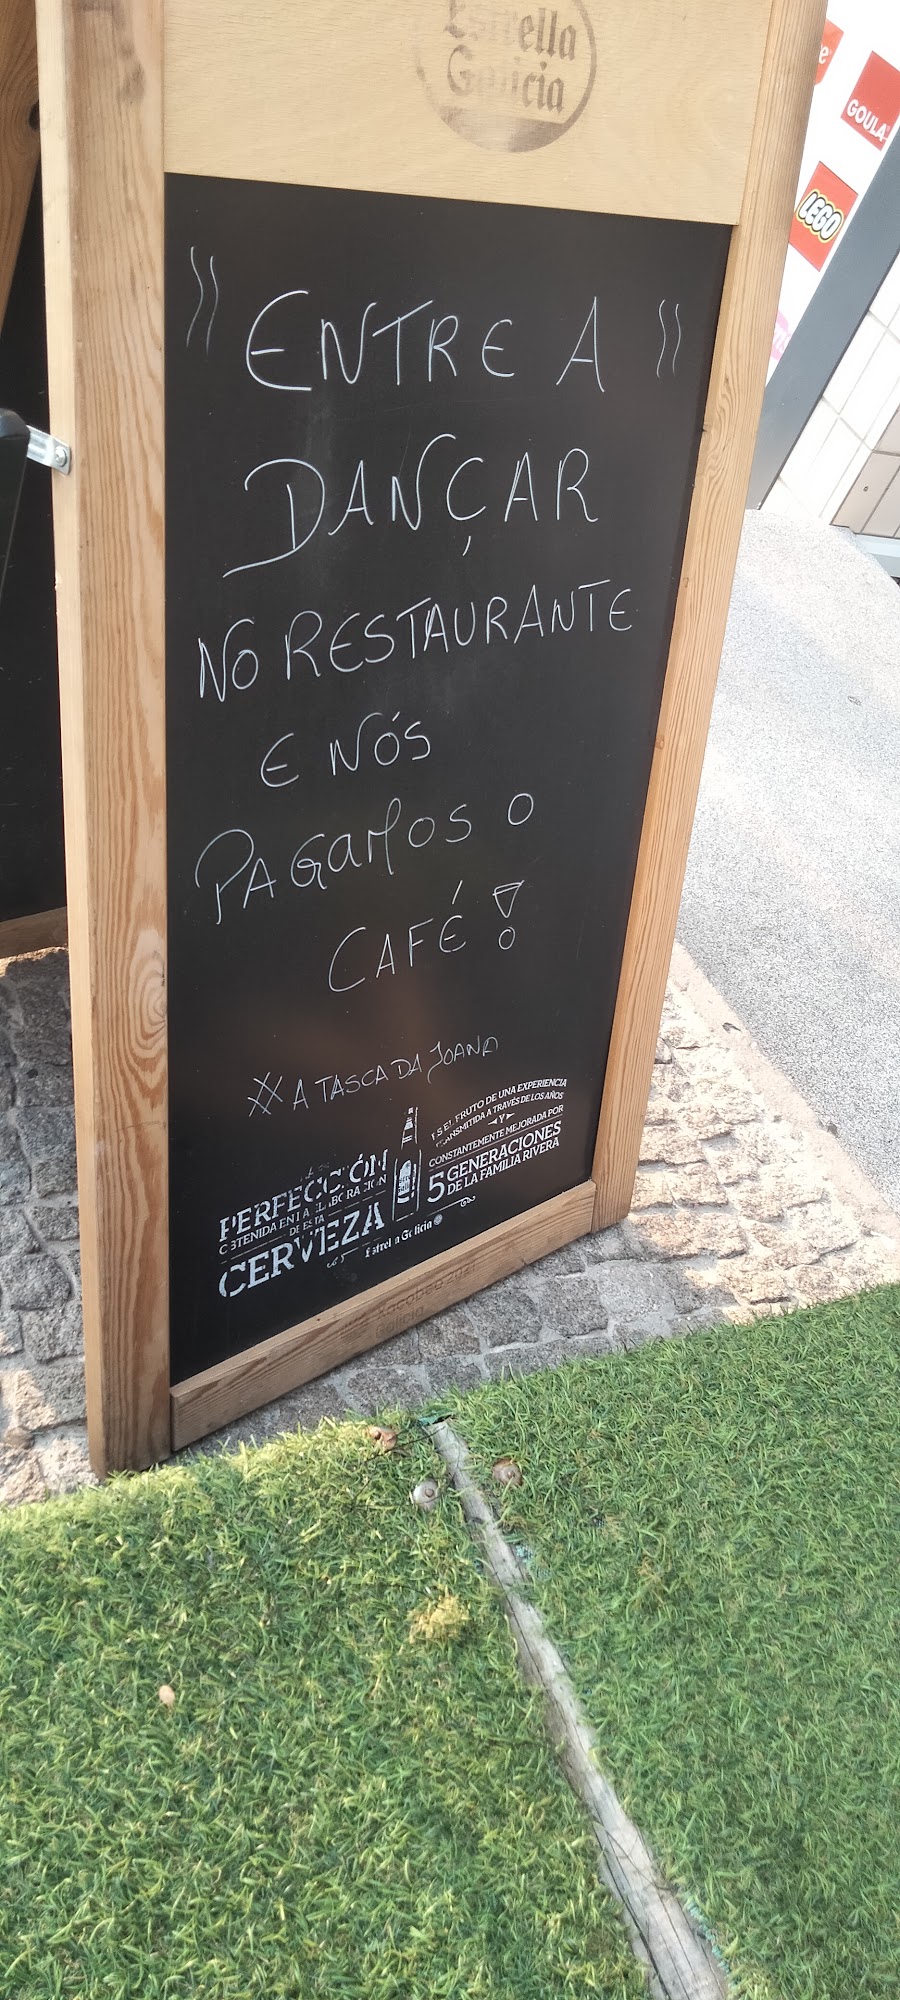 Estrella
Galicia
GOULA
LEGO
" ENTRE A "
DANÇAR
NO RESTAURANTE
E NÓS
PAGAMOS O
CAFÉ!
A TASCA DA JOANA
PERFECCIÓN
OBTENIDA EN LA ELABORACIÓN
DE ESTA
CERVEZA
Estrella Galicia
ES EL FRUTO DE UNA EXPERIENCIA
TRANSMITIDA A TRAVÉS DE LOS AÑOS
Y
CONSTANTEMENTE MEJORADA POR
5 GENERACIONES
DE LA FAMILIA RIVERA
Xacobeo 2021
Galicia